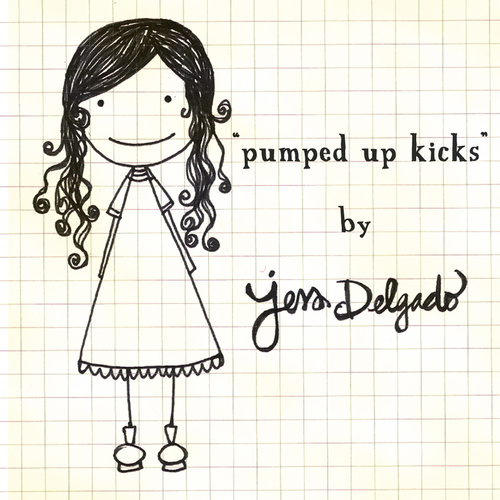 "pumped up kicks"
by
Jess Delgado